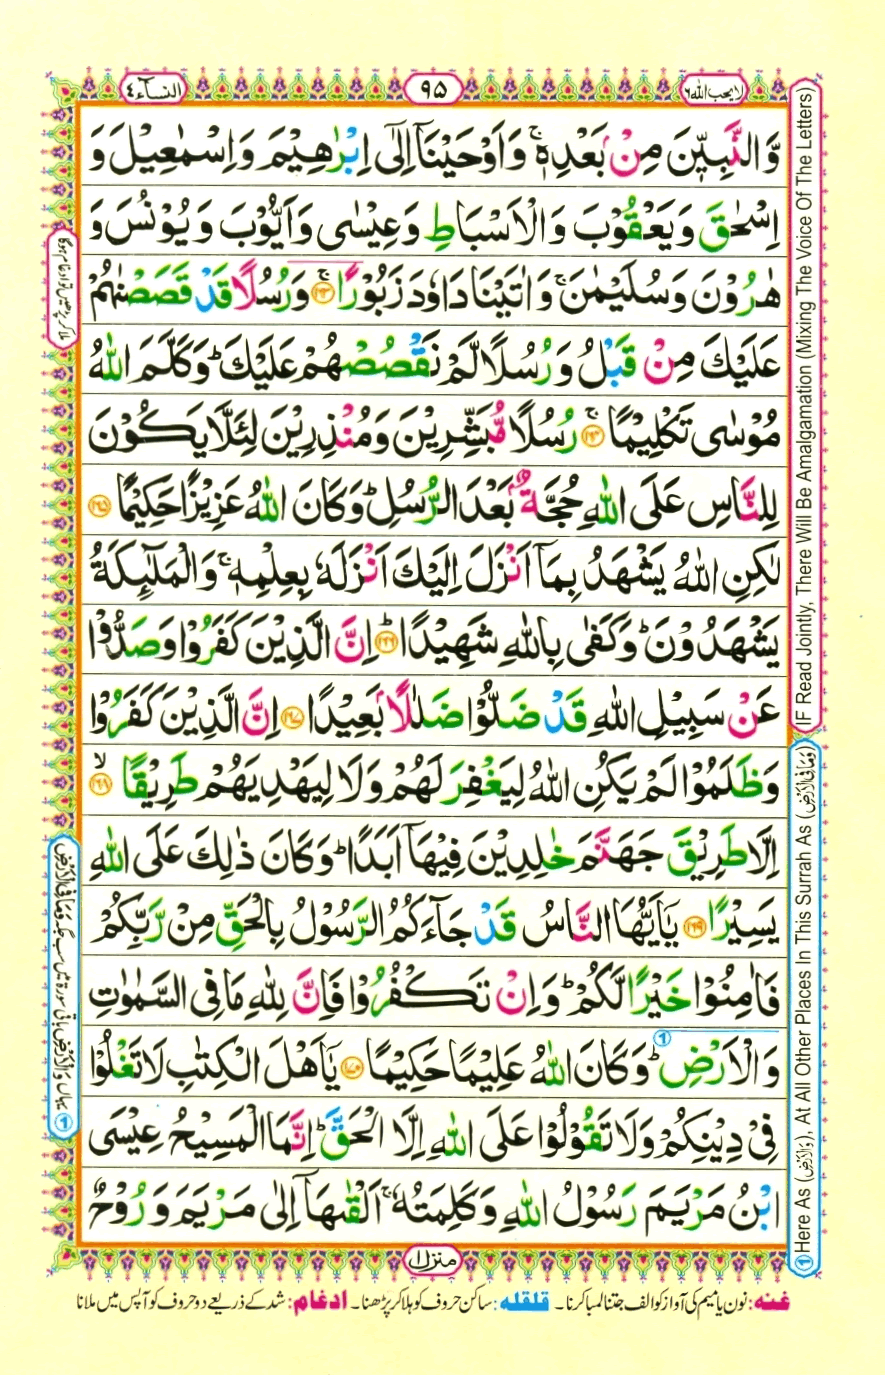 لا یحب اللہ ٦
٩٥
النسآء ٤
وَّالنَّبِيّٖنَ مِنْۢ بَعْدِهٖ ۚ وَاَوْحَيْنَاۤ اِلٰۤى اِبْرٰهِيْمَ وَاِسْمٰعِيْلَ وَ
اِسْحٰقَ وَيَعْقُوْبَ وَالْاَسْبَاطِ وَعِيْسٰى وَاَيُّوْبَ وَيُوْنُسَ وَ
هٰرُوْنَ وَسُلَيْمٰنَ ۚ وَاٰتَيْنَا دَاوٗدَ زَبُوْرًا ۚ ﴿١٦٣﴾ وَرُسُلًا قَدْ قَصَصْنٰهُمْ
عَلَيْكَ مِنْ قَبْلُ وَرُسُلًا لَّمْ نَقْصُصْهُمْ عَلَيْكَ ؕ وَكَلَّمَ اللّٰهُ
مُوْسٰى تَكْلِيْمًا ۚ ﴿١٦٤﴾ رُسُلًا مُّبَشِّرِيْنَ وَمُنْذِرِيْنَ لِئَلَّا يَكُوْنَ
لِلنَّاسِ عَلَى اللّٰهِ حُجَّةٌۢ بَعْدَ الرُّسُلِ ؕ وَكَانَ اللّٰهُ عَزِيْزًا حَكِيْمًا ﴿١٦٥﴾
لٰكِنِ اللّٰهُ يَشْهَدُ بِمَاۤ اَنْزَلَ اِلَيْكَ اَنْزَلَهٗ بِعِلْمِهٖ ۚ وَالْمَلٰٓئِكَةُ
يَشْهَدُوْنَ ؕ وَكَفٰى بِاللّٰهِ شَهِيْدًا ؕ ﴿١٦٦﴾ اِنَّ الَّذِيْنَ كَفَرُوْا وَصَدُّوْا
عَنْ سَبِيْلِ اللّٰهِ قَدْ ضَلُّوْا ضَلٰلًاۢ بَعِيْدًا ﴿١٦٧﴾ اِنَّ الَّذِيْنَ كَفَرُوْا
وَظَلَمُوْا لَمْ يَكُنِ اللّٰهُ لِيَغْفِرَ لَهُمْ وَلَا لِيَهْدِيَهُمْ طَرِيْقًا ۙ ﴿١٦٨﴾
اِلَّا طَرِيْقَ جَهَنَّمَ خٰلِدِيْنَ فِيْهَاۤ اَبَدًا ؕ وَكَانَ ذٰلِكَ عَلَى اللّٰهِ
يَسِيْرًا ﴿١٦٩﴾ يٰۤاَيُّهَا النَّاسُ قَدْ جَآءَكُمُ الرَّسُوْلُ بِالْحَقِّ مِنْ رَّبِّكُمْ
فَاٰمِنُوْا خَيْرًا لَّكُمْ ؕ وَاِنْ تَكْفُرُوْا فَاِنَّ لِلّٰهِ مَا فِى السَّمٰوٰتِ
وَالْاَرْضِ ؕ وَكَانَ اللّٰهُ عَلِيْمًا حَكِيْمًا ﴿١٧٠﴾ يٰۤاَهْلَ الْكِتٰبِ لَا تَغْلُوْا
فِىْ دِيْنِكُمْ وَلَا تَقُوْلُوْا عَلَى اللّٰهِ اِلَّا الْحَقَّ ؕ اِنَّمَا الْمَسِيْحُ عِيْسَى
ابْنُ مَرْيَمَ رَسُوْلُ اللّٰهِ وَكَلِمَتُهٗ ۚ اَلْقٰىهَاۤ اِلٰى مَرْيَمَ وَرُوْحٌ
منزل ١
غنه: نون یا میم کی آواز کو الف جتنا لمبا کرنا۔ قلقله: ساکن حروف کو ہلا کر پڑھنا۔ ادغام: شد کے ذریعے دو حروف کو آپس میں ملانا
IF Read Jointly, There Will Be Amalgamation (Mixing The Voice Of The Letters)
① Here As (وَالْاَرْضِ), At All Other Places In This Surrah As (وَمَا فِى الْاَرْضِ)
ملا کر پڑھیں تو ادغام ہوگا
① یہاں وَالْاَرْضِ باقی سورۃ میں سب جگہ وَمَا فِى الْاَرْضِ